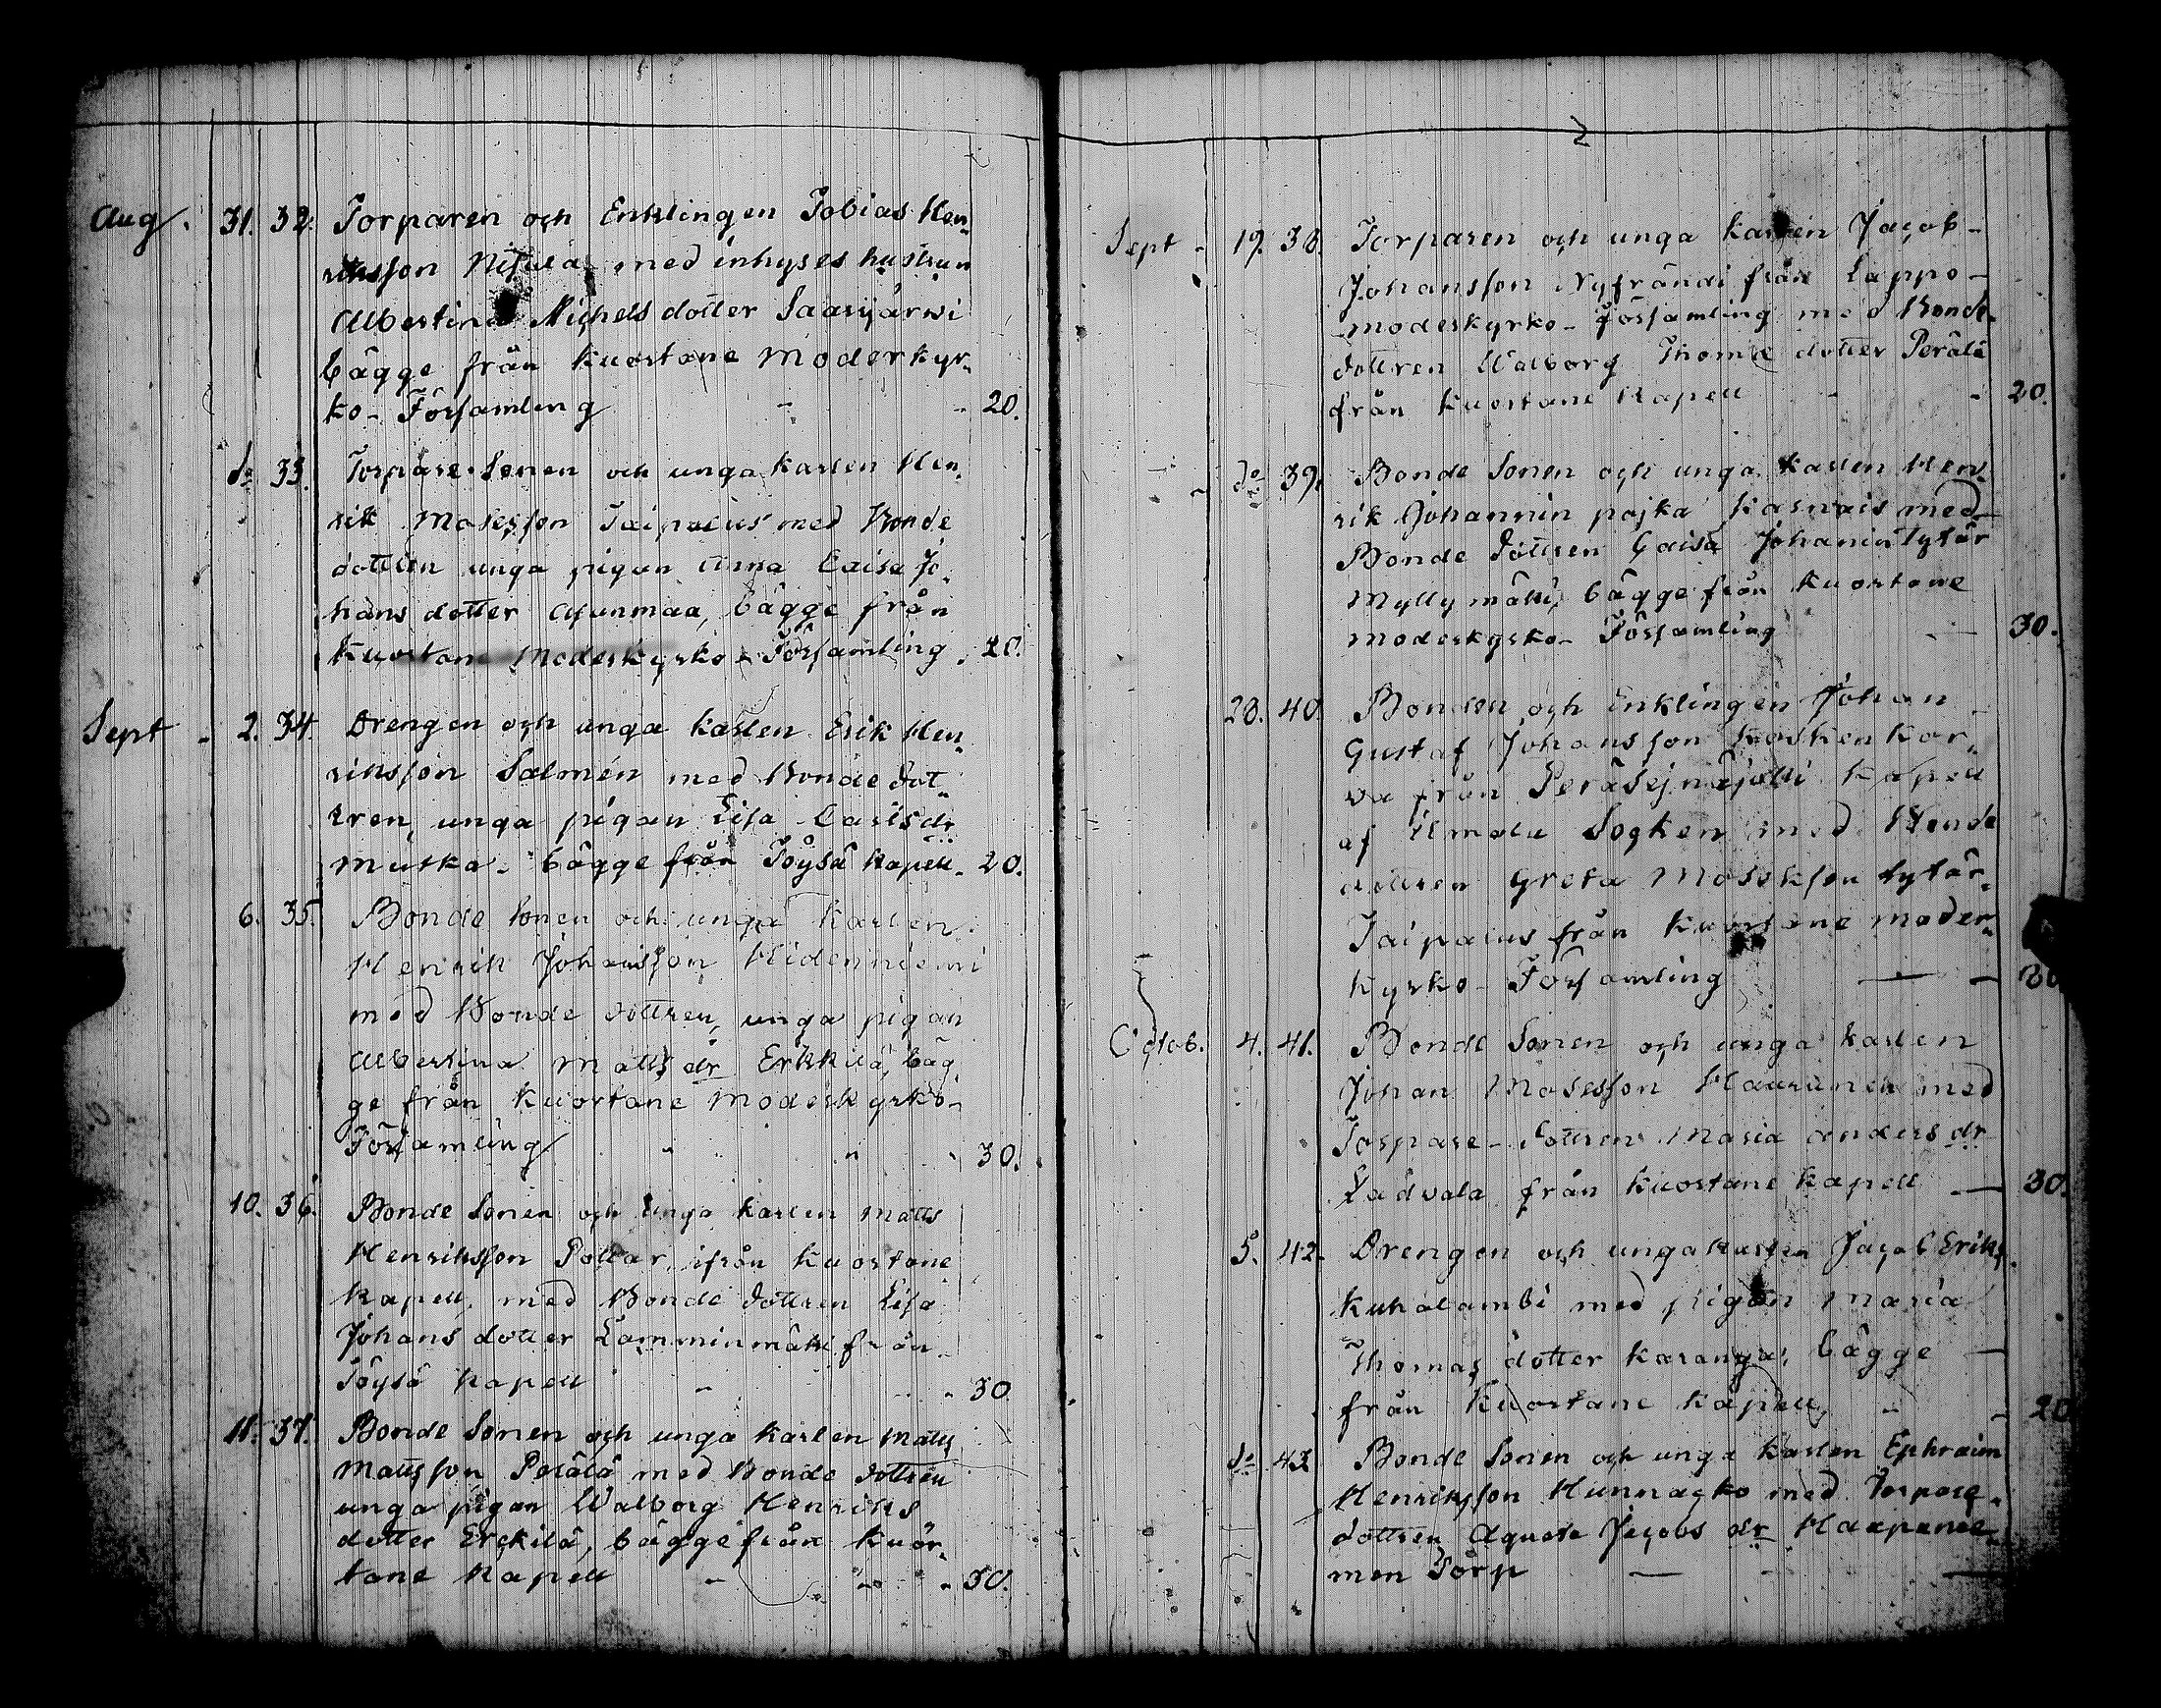 Aug. 31. 32. Torparen och Enklingen Tobias Hen-
riksson med inhyses hustrun
Albertina Michels dotter Saarijärwi
bägge från Kuortane Moderkyr-
ko-Församling - - 20.
do 33. Torpare Sonen och unga karlen Hen-
rik Mosesson Taipalus med Bonde
dottren unga pigan Anna Caisa Jo-
hans dotter Asunmaa, bägge från
Kuortane Moderkyrko-Församling. 20.
Sept - 2. 34. Drengen och unga karlen Erik Hen-
riksson Salmén med Bonde dot-
tren, unga pigan Lisa Carlsdr
Mutka - bägge från Töysä Kapell. 20.
6. 35. Bonde Sonen och unga karlen
Henrik Johansson Hidenniemi
med Bonde dottren, unga pigan
Albertina Matts dr Erkkilä, bäg-
ge från Kuortane Moderkyrko-
Församling " " 30.
10. 36. Bonde Sonen och unga karlen Matts
Henriksson Pollar, ifrån Kuortane
Kapell, med Bonde dottren Lisa
Johans dotter Lamminmäki från
Töysä Kapell - - 30
11. 37. Bonde Sonen och unga karlen Matts
Mattsson Perälä med Bonde dottren
unga pigan Walborg Henriks
dotter Erckilä, bägge från Kuor-
tane Kapell - - 30.
2
Sept - 19. 38. Torparen och unga karlen Jacob
Johansson Nyfrändi från Lappo-
moderkyrko-Församling med Bonde-
dottren Walborg Thomæ dotter Perälä
från Kuortane Kapell - - 20.
do 39. Bonde Sonen och unga karlen Hen-
rik Johannin pojka Karnais med
Bonde dottren Caisa Johanin tytär
Myllymäki, bägge från Kuortane
moderkyrko-Församling - 30.
28. 40. Bonden och Enklingen Johan
Gustaf Johansson Koskenkor-
va från Peräsejnäjoki Kapell
af Ilmola Socken med Bonde
dottren Greta Mosesson tytär-
Taipalus från Kuortane moder-
kyrko-Församling - - 30
Octob. 4. 41. Bonde Sonen och unga karlen
Johan Mosesson Haurunen med
Torpare-dottren Maria Anders dr
Ladvala från Kuortane Kapell - 30.
5. 42. Drengen och unga karlen Jacob Eriks
Kuhalambi med pigan Maria
Thomas dotter Karanga, bägge
från Kuortane Kapell, - - 20
do 43 Bonde Sonen och unga karlen Ephraim
Henriksson Hunnacko med Torpare-
dottren Agneta Jacobs dr Haapanie-
men Torp - -